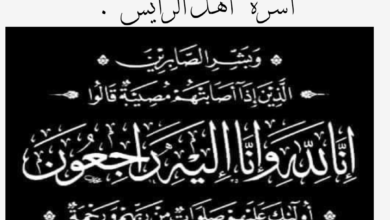 اسرة اهل الرايس .
وَبَشِّرِ الصَّابِرِينَ
الَّذِينَ إِذَا أَصَابَتْهُمْ مُصِيبَةٌ قَالُوا
إِنَّا لِلَّهِ وَإِنَّا إِلَيْهِ رَاجِعُونَ
أُولَئِكَ عَلَيْهِمْ صَلَوَاتٌ مِنْ رَبِّهِمْ وَرَحْمَةٌ